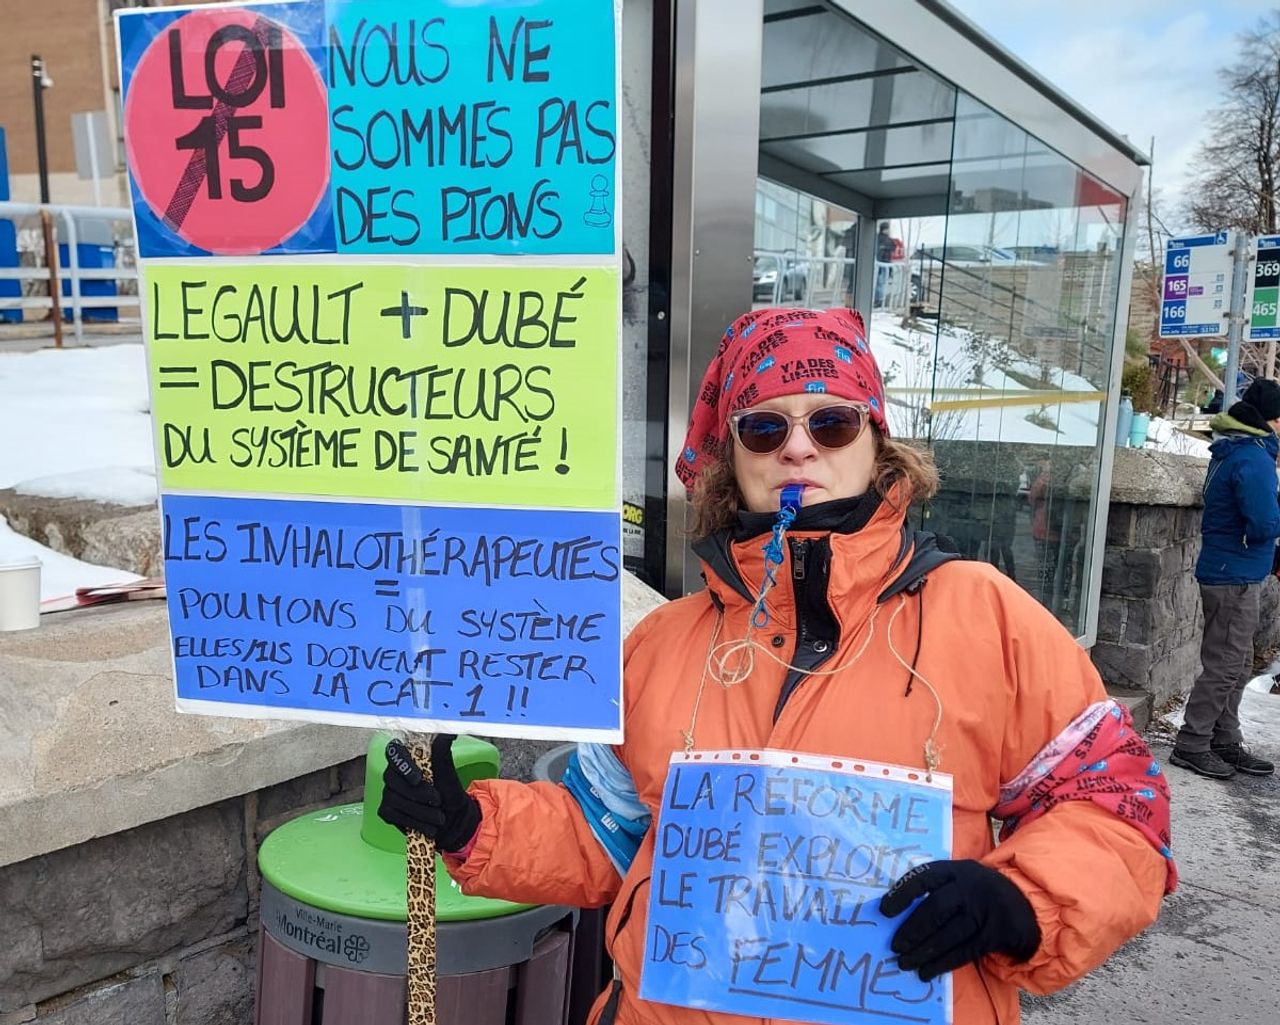 LOI
15
NOUS NE
SOMMES PAS
DES PIONS
LEGAULT + DUBÉ
= DESTRUCTEURS
DU SYSTÈME DE SANTÉ !
LES INHALOTHÉRAPEUTES
=
POUMONS DU SYSTÈME
ELLES/ILS DOIVENT RESTER
DANS LA CAT. 1 !!
Y'A DES
LIMITES
fiq
LA RÉFORME
DUBÉ EXPLOITE
LE TRAVAIL
DES FEMMES!
OMBI
OMBI
Ville-Marie
Montréal
66
165
166
369
465
ORG